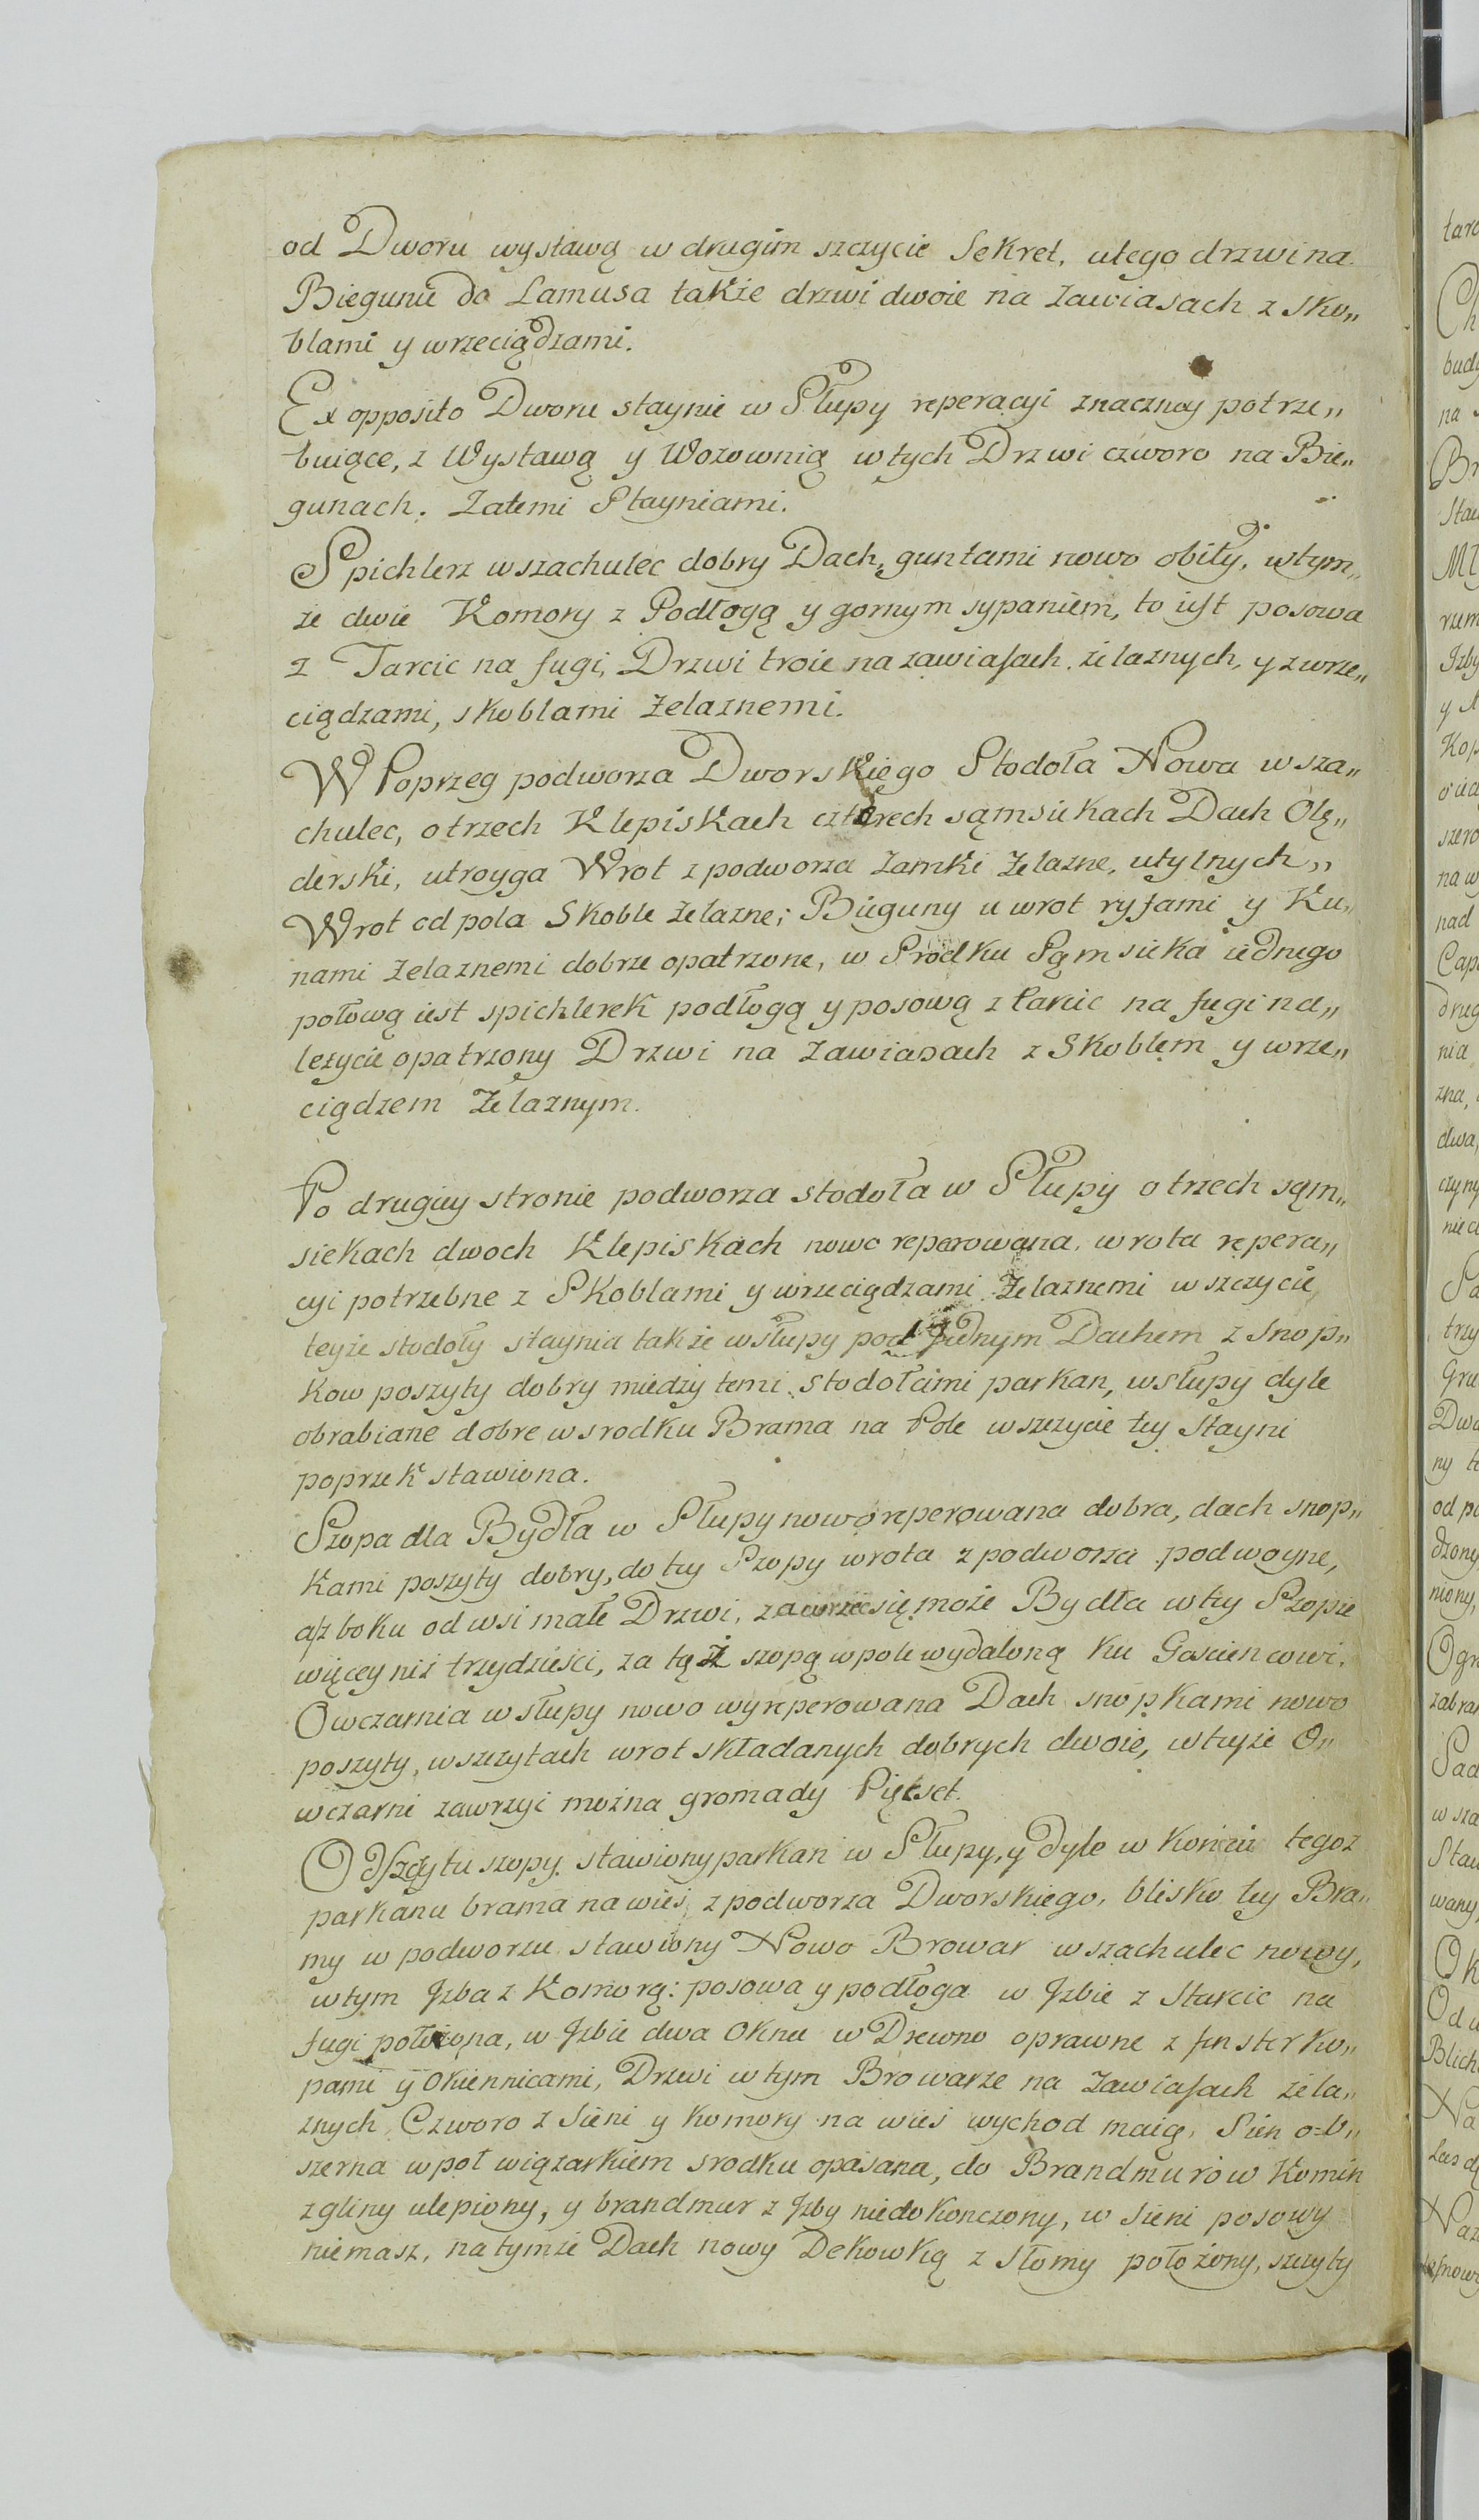 od Dworu wystawą w drugim szczycie Sekret, utego drzwi na
Biegunie do Lamusa także drzwi dwoie na zawiasach z sko„
blami y wrzeciądzami.
Ex opposito Dworu staynie w Słupy reperacyi znaczney potrze„
buiące, z Wystawą y Wozownią wtych Drzwi czworo na Bie„
gunach. Zatemi Stayniami.
Spichlerz wszachulec dobry Dach, guntami nowo obity, wtym„
że dwie Komory z Podłogą y gornym sypaniem, to iest posowa
z Tarcic na fugi, Drzwi troie na zawiasach żelaznych, y zwrze„
ciądzami, skoblami żelaznemi.
W Poprzeg podworza Dworskiego Stodoła Nowa wsza„
chulec, o trzech Klepiskach czterech sąmsiekach Dach Olę„
derski, utroyga Wrot z podworza zamki żelazne, utylnych„
Wrot od pola Skoble żelazne; Bieguny u wrot ryfami y Ku„
nami żelaznemi dobrze opatrzone, w Srodku Sąmsieka iednego
połową iest spichlerek podłogą y posową z tarcic na fugi na„
leżycie opatrzony Drzwi na zawiasach z Skoblem y wrze„
ciądzem Żelaznym.
Po drugiey stronie podworza stodoła w Słupy o trzech sąm„
siekach dwoch Klepiskach nowo reperowana, wrota repera„
cyi potrzebne z Skoblami y wrzeciądzami Żelaznemi w szczycie
teyże stodoły staynia także wsłupy pod Jednym Dachem z snop„
kow poszyty dobry miedzy temi stodołami parkan, wsłupy dyle
obrabiane dobre wsrodku Brama na Pole wszczycie tey Stayni
poprzek stawiona.
Szopa dla Bydła w Słupy nowo reperowana dobra, dach snop„
kami poszyty dobry, do tey Szopy wrota z podworza podwoyne,
a z boku od wsi małe Drzwi, zawrzec się może Bydła wtey Szopie
więcey niż trzydzieści, za tęż szopą wpole wydaloną ku Goscieńcowi.
Owczarnia wsłupy nowo wyreperowana Dach snopkami nowo
poszyty, wszczytach wrot składanych dobrych dwoie, wteyże O„
wczarni zawrzyć można gromady Pięcset.
Od Szczytu szopy stawiony parkan w Słupy, y dyle w Końcu tegoż
parkanu brama na wieś z podworza Dworskiego, blisko tey Bra„
my w podworzu stawiony Nowo Browar wszachulec nowy,
wtym Jzba z Komorą: posowa y podłoga w Jzbie z Starcic na
fugi położona, w Jzbie dwa Okna w Drewno oprawne z fensterko„
pami y Okiennicami, Drzwi wtym Browarze na Zawiasach żela„
znych Czworo z sieni y Komory na wieś wychod maią, Sien ob„
szerna wpoł wiązarkiem srodku opasana, do Brandmurow Komin
z gliny ulepiony, y brandmur z Jzby niedokonczony, w sieni posowy
niemasz, natymże Dach nowy Dekowką z Słomy położony, szczyty